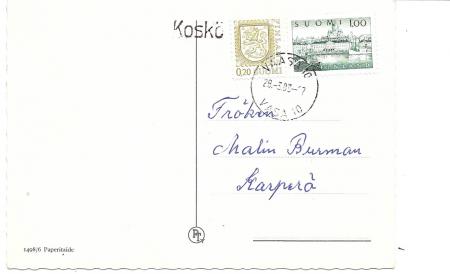 Koskö
0,20 SUOMI
SUOMI 1,00
VAASA 10
VASA 10
Fröken
Malin Burman
Karperö
1498/6 Paperitaide
PT